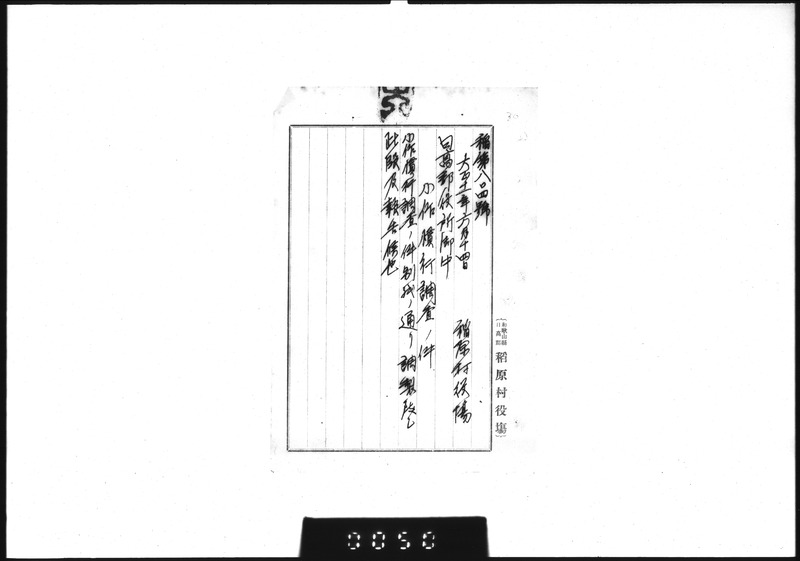 稲第八〇四號
大正十一年六月十四日
稲原村役場
日高郡役所御中
小作慣行調査ノ件
小作慣行調査ノ件別紙ノ通リ調製致シ
此段及報告候也
和歌山縣
日高郡
稻原村役塲
0050